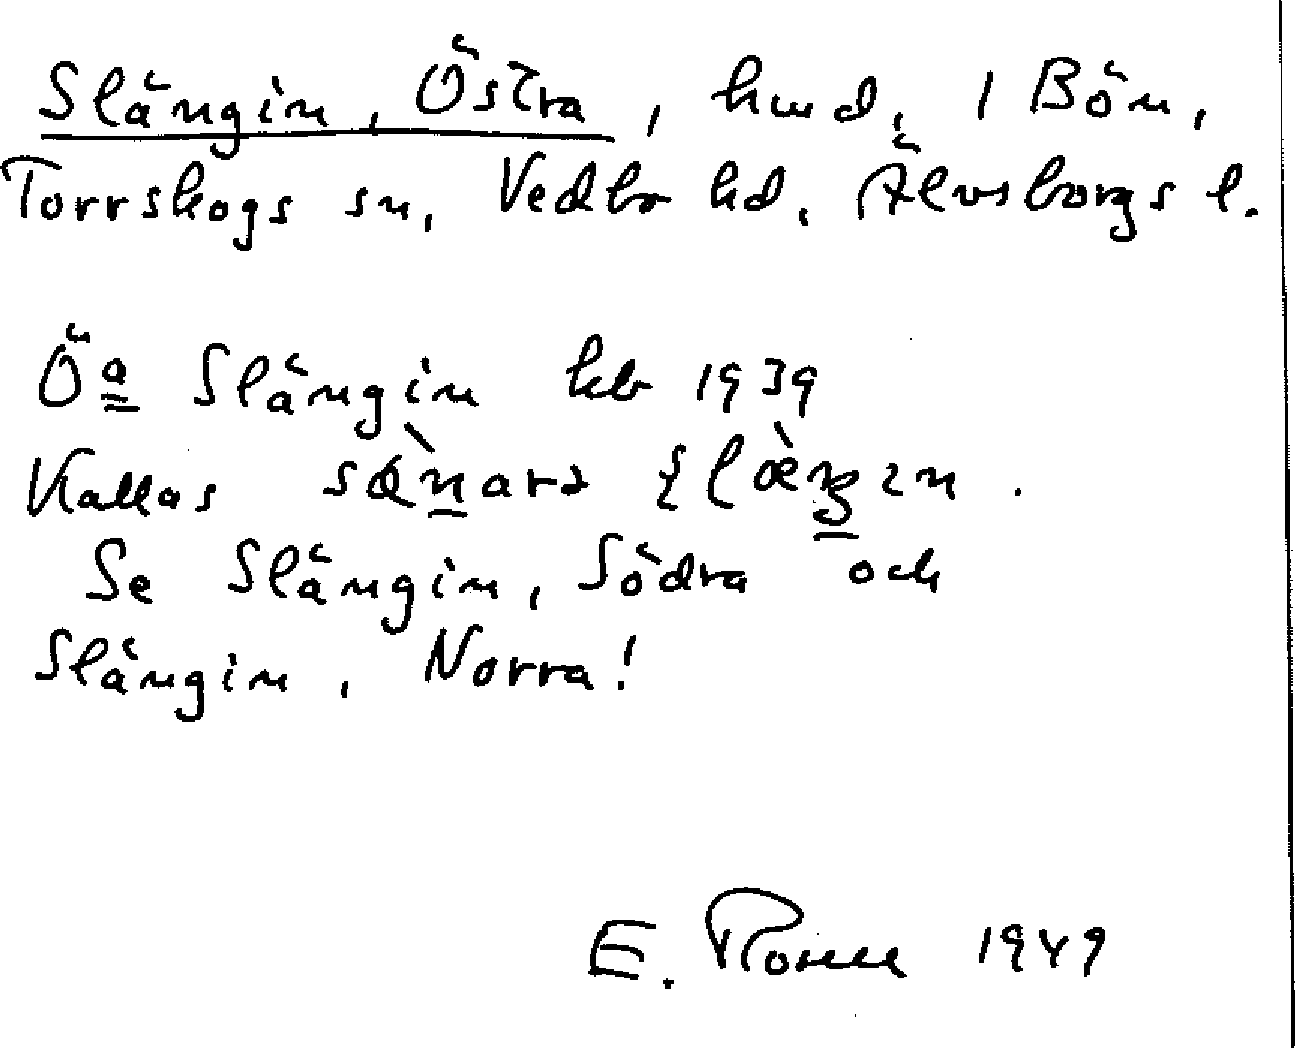 Slängin, Östra, hmd, 1 Bön,
Torrskogs sn, Vedbo hd, Älvsborgs l.
Öa Slängin kb 1939
Kallas
Se Slängin, Södra och
Slängin, Norra!
E. 1949